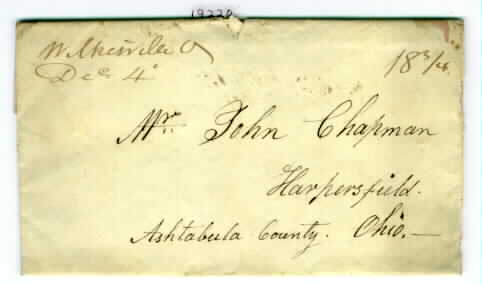 19220
Wilkesville O
Dec 4
18 3/4
Mr. John Chapman
Harpersfield.
Ashtabula County. Ohio.—